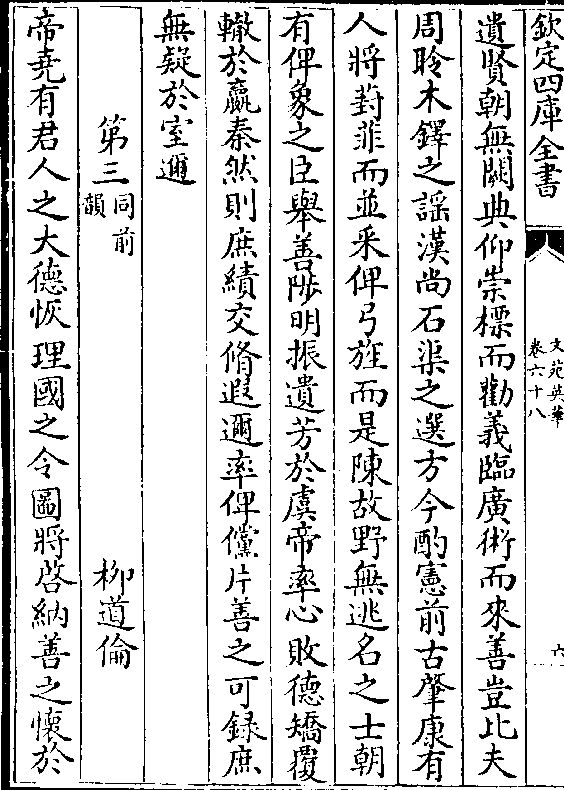 欽定四庫全書
文苑英華
卷六十八
六
遺賢朝無闕典仰崇標而勸義臨廣術而來善豈比夫
周聆木鐸之謡漢尚石渠之選方今酌憲前古肇康有
人將葑菲而並采俾弓旌而是陳故野無逃名之士朝
有俾象之臣舉善陟明振遺芳於虞帝率心敗德矯覆
轍於嬴秦然則庶績交脩遐邇率俾儻片善之可録庶
無疑於室邇
第三
同前
韻
柳道倫
帝堯有君人之大德恢理國之令圖將啓納善之懷於